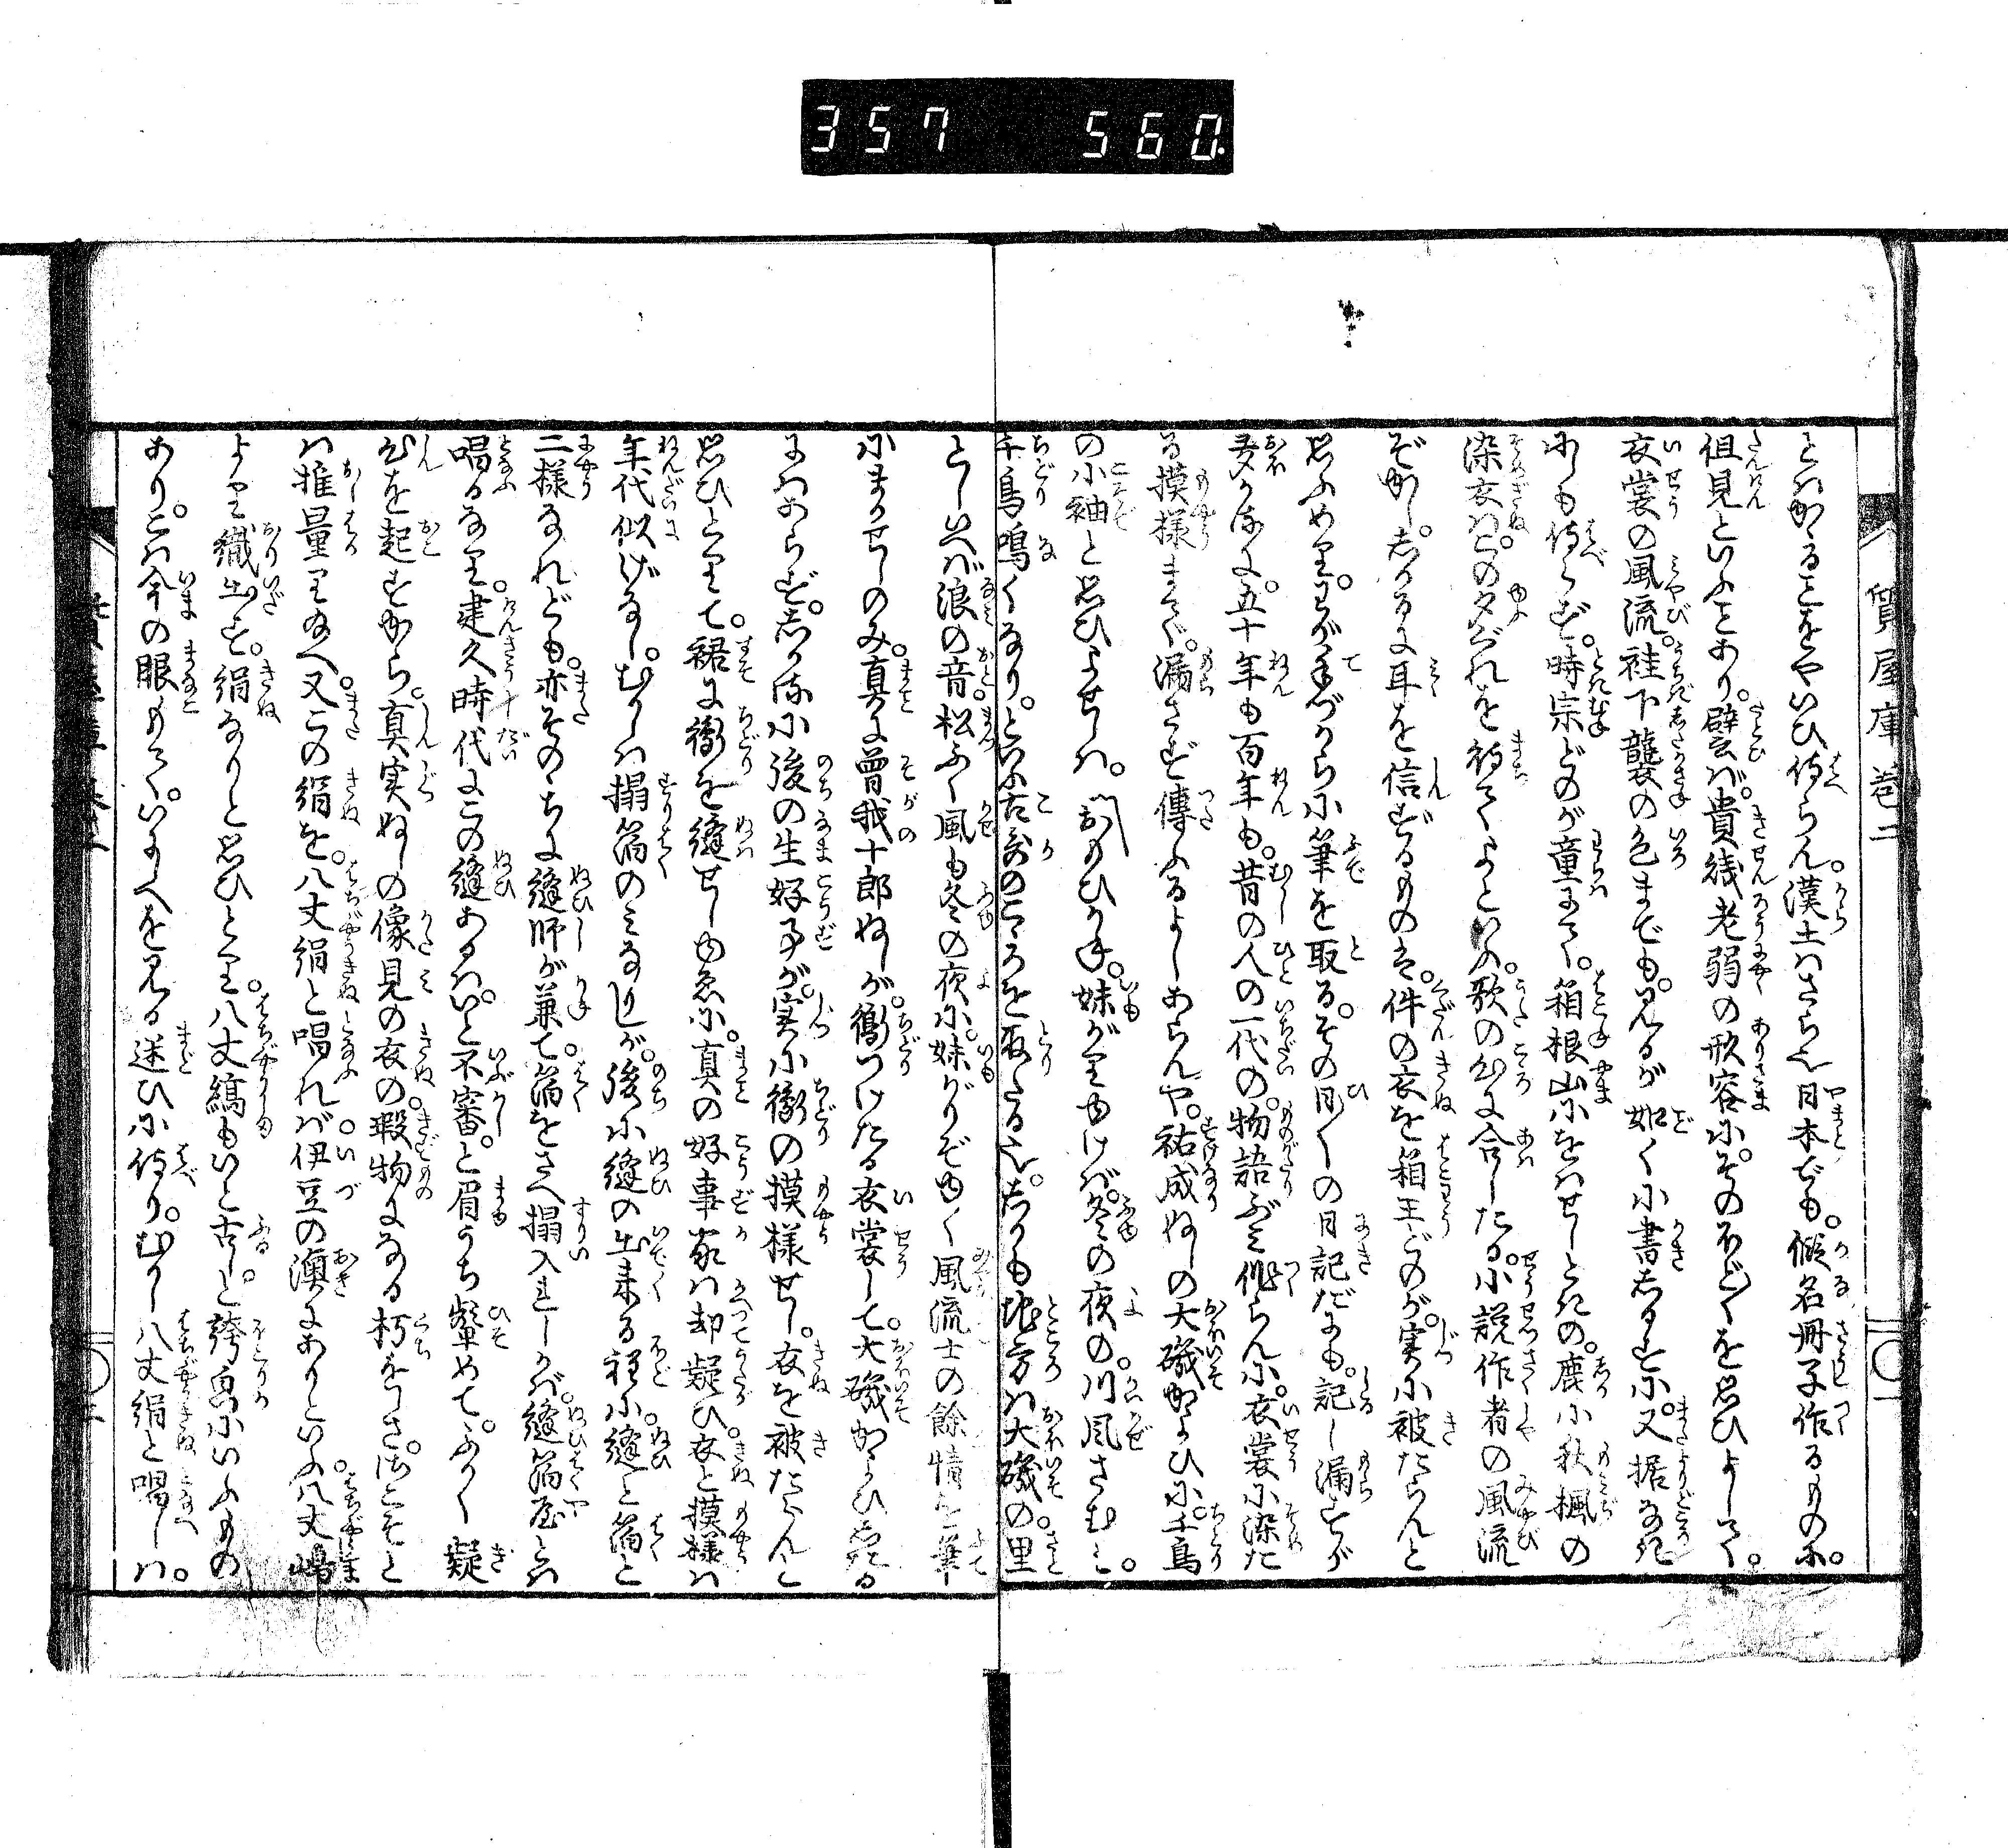 357 560
質屋庫巻二
とハかゝることをやいひ侍らん。漢土ハさら也日本でも。假名冊子作るものハ。
徂見といふことあり。譬バ。貴賤老弱の形容に。そのほど〳〵を思ひよして。
衣裳の風流。袿下襲の色までも。見るが如くに書しるすに。又据なき
にしも侍らず。時宗どのが童にて。箱根山にをハせしときの。鹿に秋楓の
染衣ハ。この夕ぐれを待てよといふ。歌の心に合したる。小説作者の風流
ぞかし。しかるに耳を信ずるものハ。件の衣を箱王どのが。実に被たらんと
思ふめり。わが手づからに筆を取る。その日〳〵の日記だにも。記し漏すが
多かるに。五十年も百年も。昔の人の一代の。物語ぶミ作らんに。衣裳に染た
る摸様まで。漏さず傳ふるよしあらんや。祐成ぬしの大磯がよひに。千鳥
の小袖と思ひよせしハ。 おもひかね。妹がりゆけバ。冬の夜の。川風さむミ。
千鳥鳴くなり。といふ古哥のこゝろを取たる也。しかも地方ハ大磯の。里
としいへバ浪の音。松ふく風も冬の夜に。妹がりぞゆく風流士の餘情を筆
にまかせしのみ。真に曽我十郎ぬしが。衞つけたる衣裳して。大磯がよひしたる
にハあらず。しかるに後の生好事が。実に衞の摸様せし。衣を被たらんと
思ひとりて。裾に衞を縫せしゆゑに。真の好事家ハ却疑ひ。衣と摸様ハ
年代似げなし。むかしハ摺箔のミなりしが。後に縫の出来る程に。縫と箔と
二様なれども。亦そのゝちに縫師が兼て。箔をさへ摺入れしかバ。縫箔屋とハ
唱るなり。建久時代にこの縫あるハ。いと不審。と眉うち顰めて。ふかく疑
心を起すから。真実ぬしの像見の衣の。瑕物になる朽をしさ。
ハ推量り給へ。又この絹を。八丈絹と唱れバ。伊豆の澳にありといふ。八丈嶋
より織出す。絹なりと思ひとり。八丈縞もいと古し。と誇㒵にいふもの
あり。こハ今の眼もて。いにしへを見る迷ひに侍り。むかし八丈絹と唱しハ。